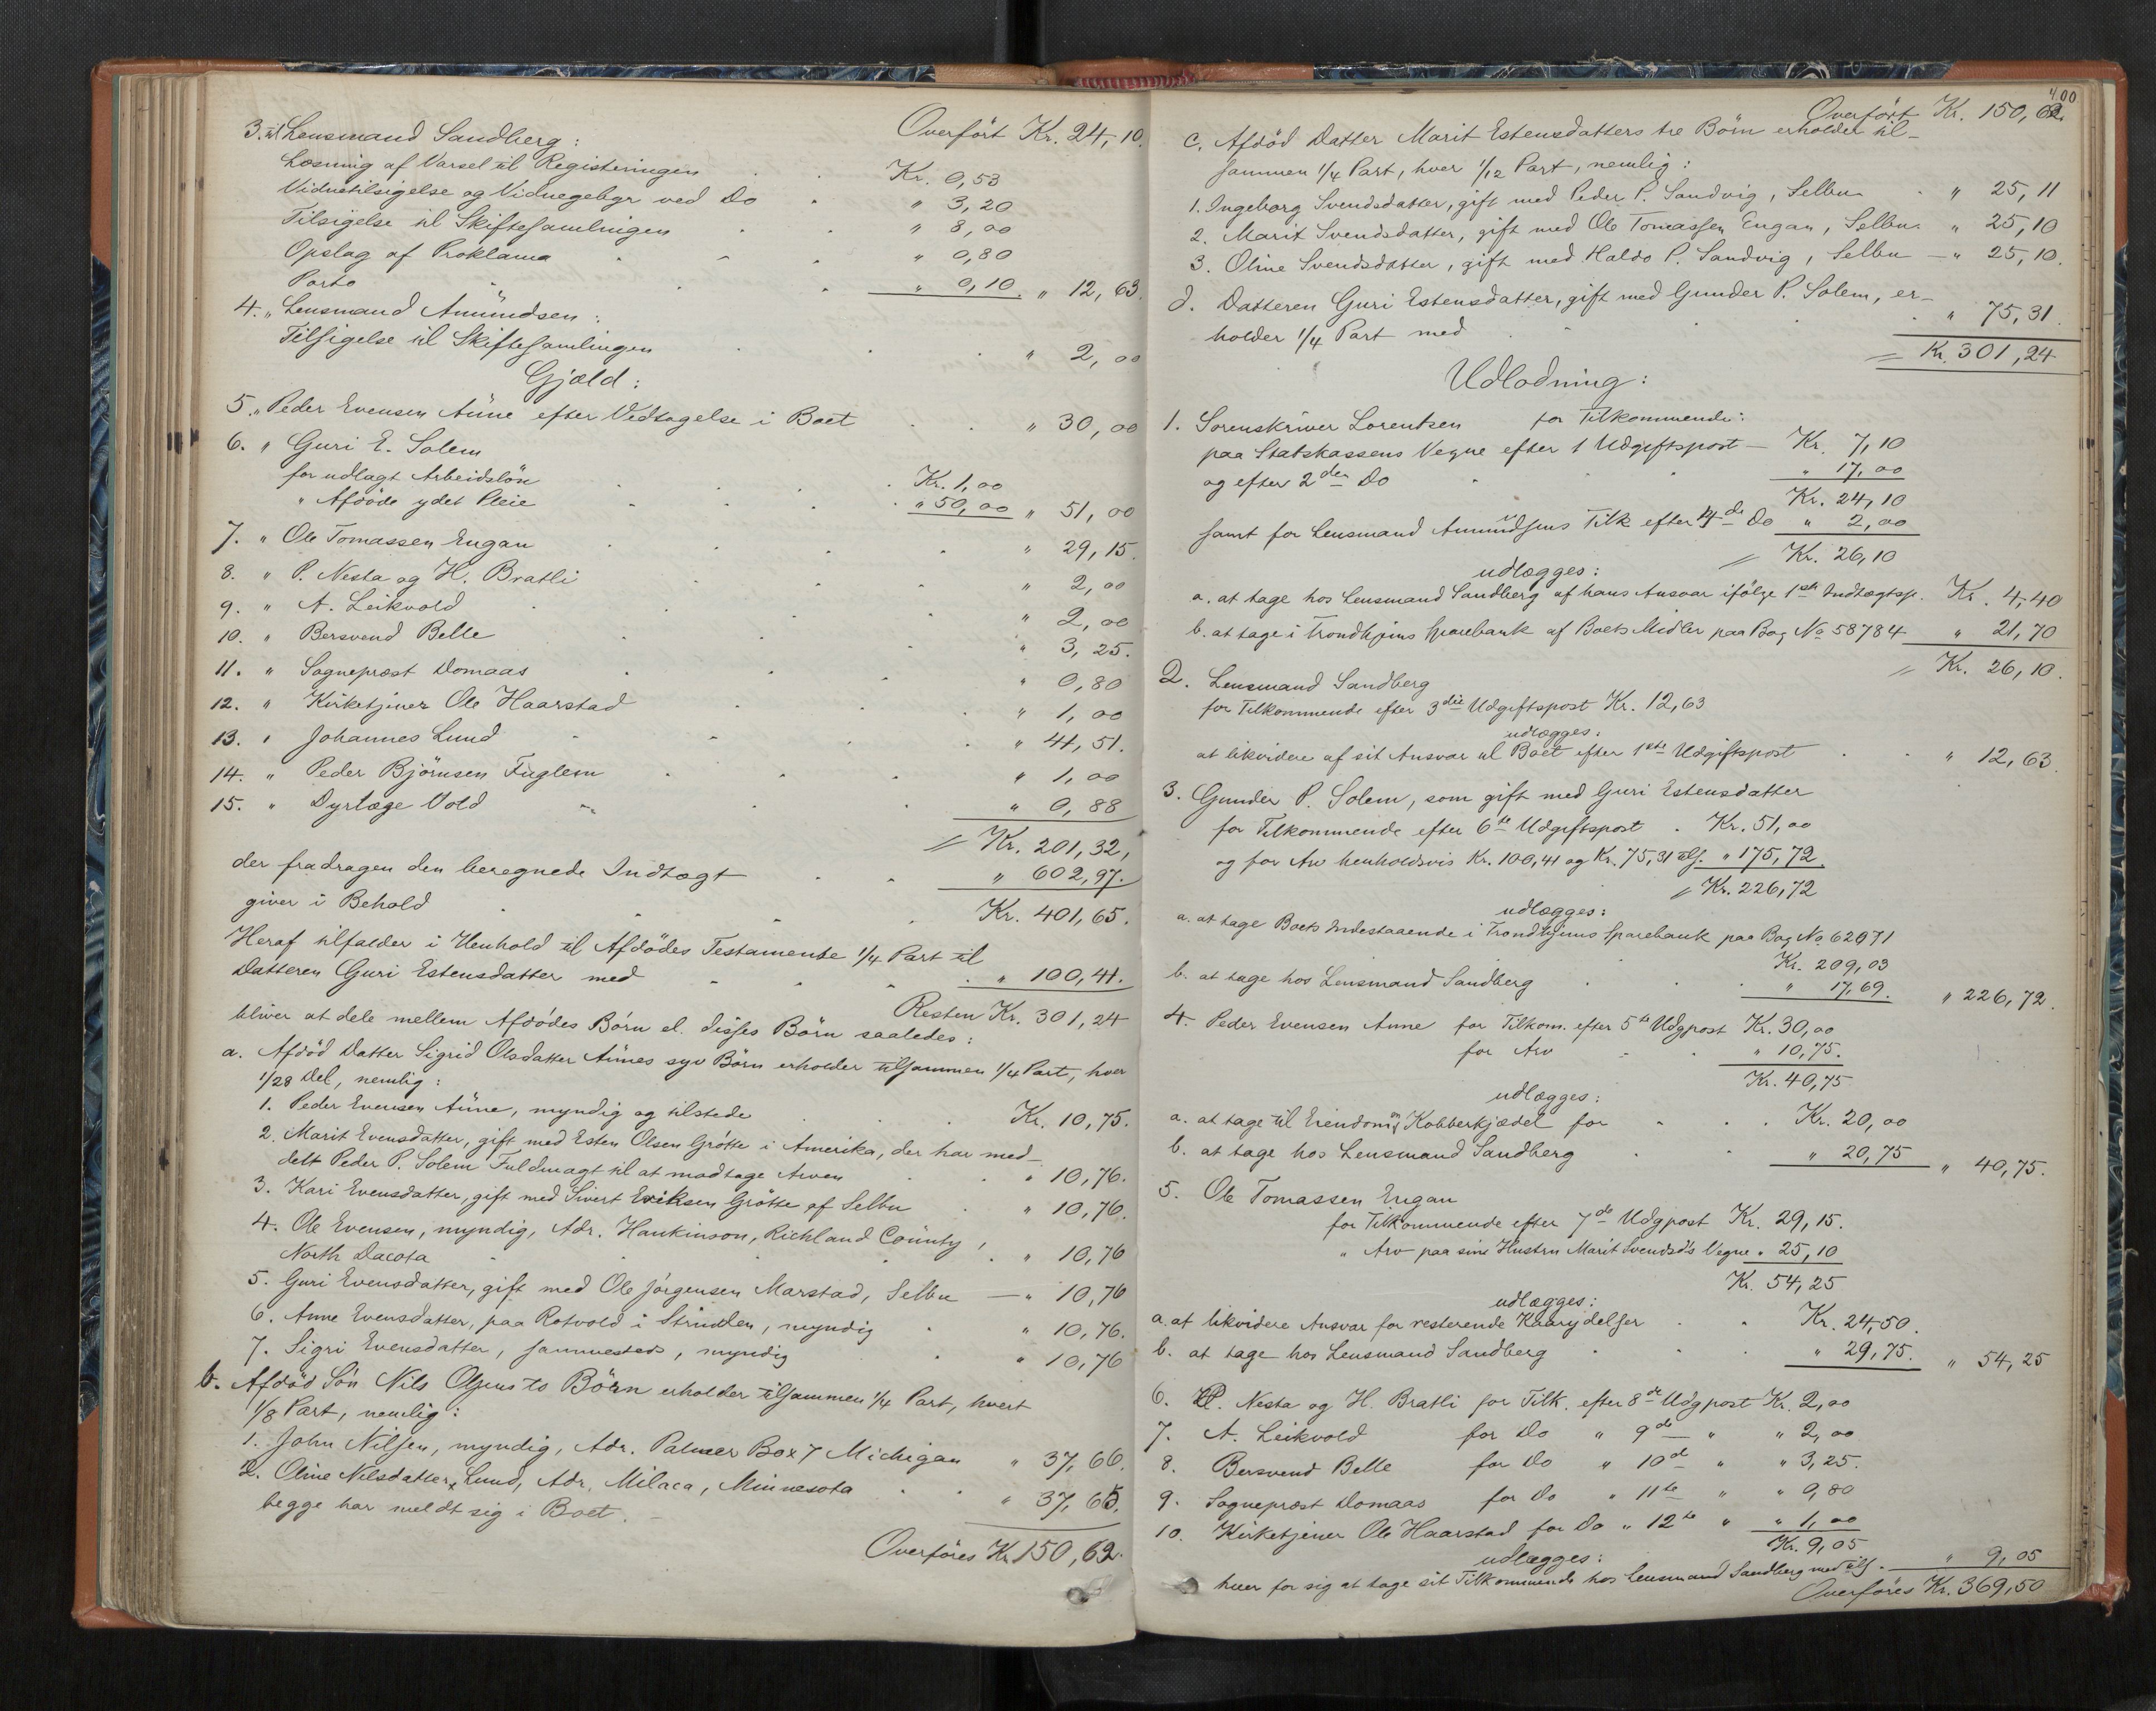 Overført Kr. 24,10.
3. til Lensmand Sandberg:
Læsning af Varsel til Registeringen . . Kr. 0,53
Vidnetilsigelse og Vidnegebyr ved Do . " 3,20
Tilsigelse til Skiftesamlingen . . " 8,00
Opslag af Proklama . . . " 0,80
Porto . . . " 0,10. " 12,63.
4. " Lensmand Amundsen:
Tilsigelse til Skiftesamlingen . . . " 2,00
Gjæld:
5. " Peder Evensen Aune efter Vedtagelse i Boet . . " 30,00
6. " Guri E. Solem
for udlagt Arbeidsløn . . . Kr. 1,00
" Afdøde ydet Pleie . . . " 50,00 " 51,00
7. " Ole Tomassen Engan . . . " 29,15.
8. " P. Nesta og H. Bratli . . . " 2,00
9. " A. Leikvold . . . " 2,00
10. " Bersvend Belle . . . " 3,25.
11. " Sogneprest Domaas . . . " 0,80
12. " Kirketjener Ole Haarstad . . . " 1,00
13. " Johannes Lund . . . " 41,51.
14. " Peder Bjørnsen Fuglem . . . " 1,00
15. " Dyrlæge Vold . . . " 0,88
= Kr. 201,32,
der fradragen den beregnede Indtægt . . " 602,97.
giver i Behold . . . Kr. 401,65.
Heraf tilfalder i Henhold til Afdødes Testamente 1/4 Part til
Datteren Guri Estensdatter med . . . " 100,41.
Resten Kr. 301,24
bliver at dele mellem Afdødes Børn el. disses Børn saaledes:
a. Afdød Datter Sigrid Olsdatter Aunes syv Børn erholder tilsammen 1/4 Part, hver
1/28 Del, nemlig:
1. Peder Evensen Aune, myndig og tilstede . . Kr. 10,75.
2. Marit Evensdatter, gift med Esten Olsen Grøtte i Amerika, der har med-
delt Peder P. Solem Fuldmagt til at modtage Arven . . " 10,76.
3. Kari Evensdatter, gift med Sivert Eriksen Grøtte af Selbu . " 10,76.
4. Ole Evensen, myndig, Adr. Hankinson, Richland County,
North Dacota . . . " 10,76
5. Guri Evensdatter, gift med Ole Jørgensen Marstad, Selbu — " 10,76
6. Anne Evensdatter, paa Rotvold i Strinden, myndig . " 10,76.
7. Sigri Evensdatter, sammesteds, myndig . . " 10,76
b. Afdød Søn Nils Olsens to Børn erholder tilsammen 1/4 Part, hvert
1/8 Part, nemlig:
1. John Nilsen, myndig, Adr. Palmer Box 7 Michigan " 37,66.
2. Oline Nilsdatter, Lund, Adr. Milaca, Minnesota . . " 37,65.
begge har meldt sig i Boet. —
Overføres Kr. 150,62.
400
Overført Kr. 150,62.
c. Afdød Datter Marit Estensdatters tre Børn erholder til-
sammen 1/4 Part, hver 1/12 Part, nemlig:
1. Ingeborg Svendsdatter, gift med Peder P. Sandvig, Selbu . " 25,11
2. Marit Svendsdatter, gift med Ole Tomassen Engan, Selbu . " 25,10
3. Oline Svendsdatter, gift med Haldo P. Sandvig, Selbu — " 25,10.
d. Datteren Guri Estensdatter, gift med Gunder P. Solem, er-
holder 1/4 Part med . . . " 75,31.
= Kr. 301,24
Udlodning:
1. Sorenskriver Lorentzen for Tilkommende:
paa Statskassens Vegne efter 1 Udgiftspost — Kr. 7,10
og efter 2den Do . . " 17,00
Kr. 24,10
samt for Lensmand Amundsens Tilk efter 4de Do " 2,00
= Kr. 26,10
udlægges:
a. at tage hos Lensmand Sandberg af hans Ansvar ifølge 1ste Indtægtsp. Kr. 4,40
b. at tage i Trondhjems Sparebank af Boets Midler paa Bog No 58784 " 21,70
= Kr. 26,10.
2. Lensmand Sandberg
for Tilkommende efter 3die Udgiftspost Kr. 12,63
udlægges:
at likvidere af sit Ansvar til Boet efter 1ste Udgiftspost . . " 12,63.
3. Gunder P. Solem, som gift med Guri Estensdatter
for Tilkommende efter 6te Udgiftspost . Kr. 51,00
og for Arv henholdsvis Kr. 100,41 og Kr. 75,31 tils. " 175,72.
= Kr. 226,72
udlægges:
a. at tage Boets Indestaaende i Trondhjems Sparebank paa Bog No 62071
Kr. 209,03
b. at tage hos Lensmand Sandberg . . . " 17,69. " 226,72.
4. Peder Evensen Aune for Tilkom. efter 5te Udgpost Kr. 30,00
for Arv . . " 10,75.
Kr. 40,75
udlægges:
a. at tage til Eiendom 1 Kobberkjedel for . . . Kr. 20,00
b. at tage hos Lensmand Sandberg . . " 20,75 " 40,75.
5. Ole Tomassen Engan
for Tilkommende efter 7de Udgpost Kr. 29,15.
" Arv paa sine Hustru Marit Svendsd's Vegne " 25,10
Kr. 54,25
udlægges:
a. at likvidere Ansvar for resterende Kaarydelser . . Kr. 24,50.
b. at tage hos Lensmand Sandberg . . . " 29,75. " 54,25
6. P. Nesta og H. Bratli for Tilk. efter 8de Udgpost Kr. 2,00
7. A. Leikvold for Do " 9de " " 2,00
8. Bersvend Belle for Do " 10de " " 3,25.
9. Sogneprest Domaas for Do " 11te " " 0,80
10. Kirketjener Ole Haarstad for Do " 12te " " 1,00
Kr. 9,05
udlægges:
hver for sig at tage sit Tilkommende hos Lensmand Sandberg med tils. " 9,05
Overføres Kr. 369,50